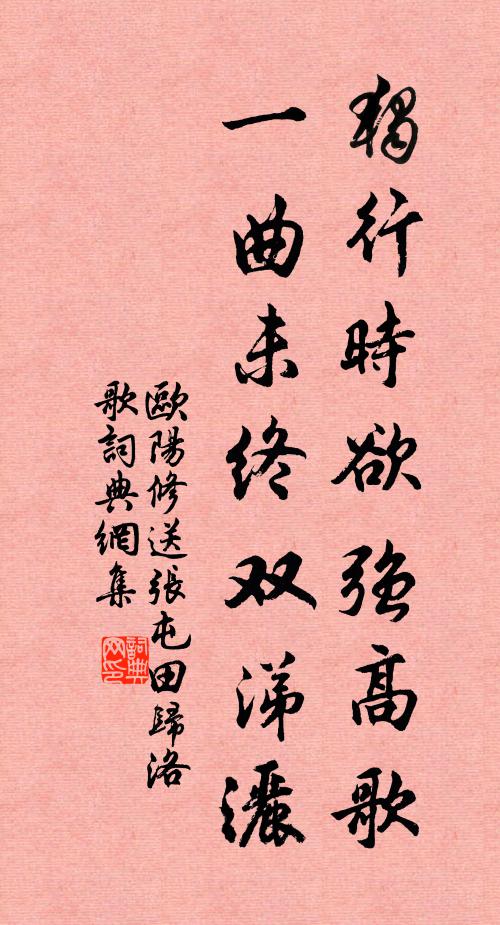 獨行時欲強高歌
一曲未終双涕灑
歐陽修送張屯田歸洛
歌詞典網集
詞典
网印